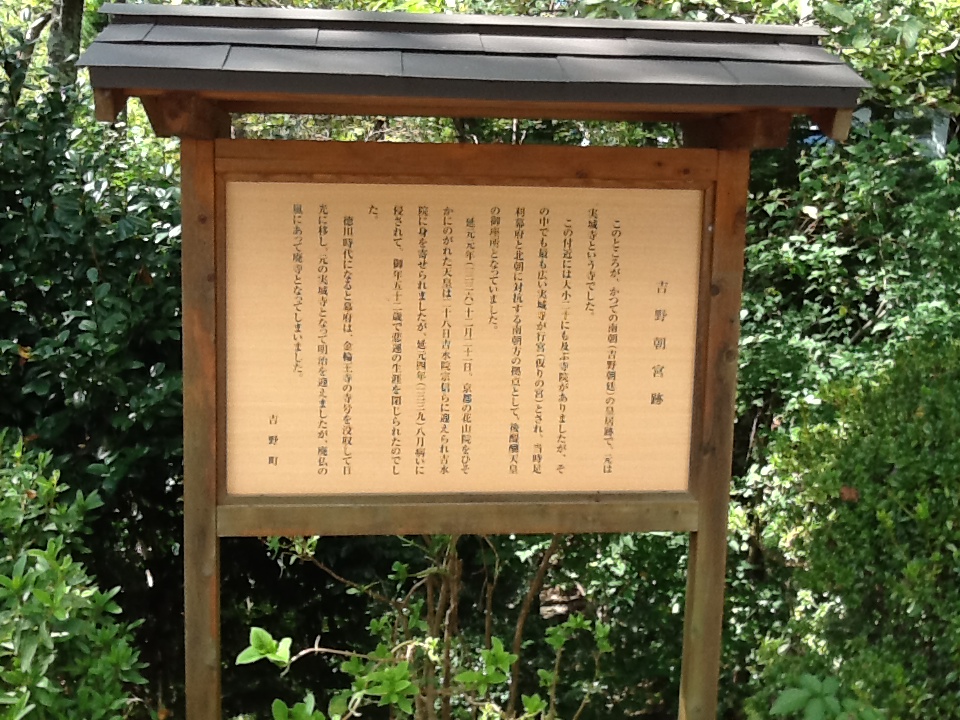 吉野朝宮跡
このところが、かつての南朝(吉野朝廷)の皇居跡で、元は
実城寺という寺でした。
この付近には大小二十にも及ぶ寺院がありましたが、そ
の中でも最も広い実城寺が行宮(仮りの宮)とされ、当時足
利幕府と北朝に対抗する南朝方の拠点として、後醍醐天皇
の御座所となっていました。
延元元年(一三三六)十二月二十一日、京都の花山院をひそ
かにのがれた天皇は二十八日吉水院宗信らに迎えられ吉水
院に身を寄せられましたが、延元四年(一三三九)八月病いに
侵されて、御年五十二歳で悲運の生涯を閉じられたのでし
た。
徳川時代になると幕府は、金輪王寺の寺号を没収して日
光に移し、元の実城寺となって明治を迎えましたが、廃仏の
嵐にあって廃寺となってしまいました。
吉野町